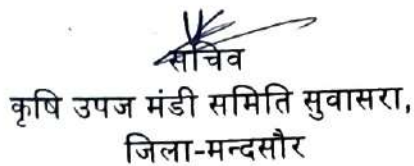 सचिव
कृषि उपज मंडी समिति सुवासरा,
जिला-मन्दसौर